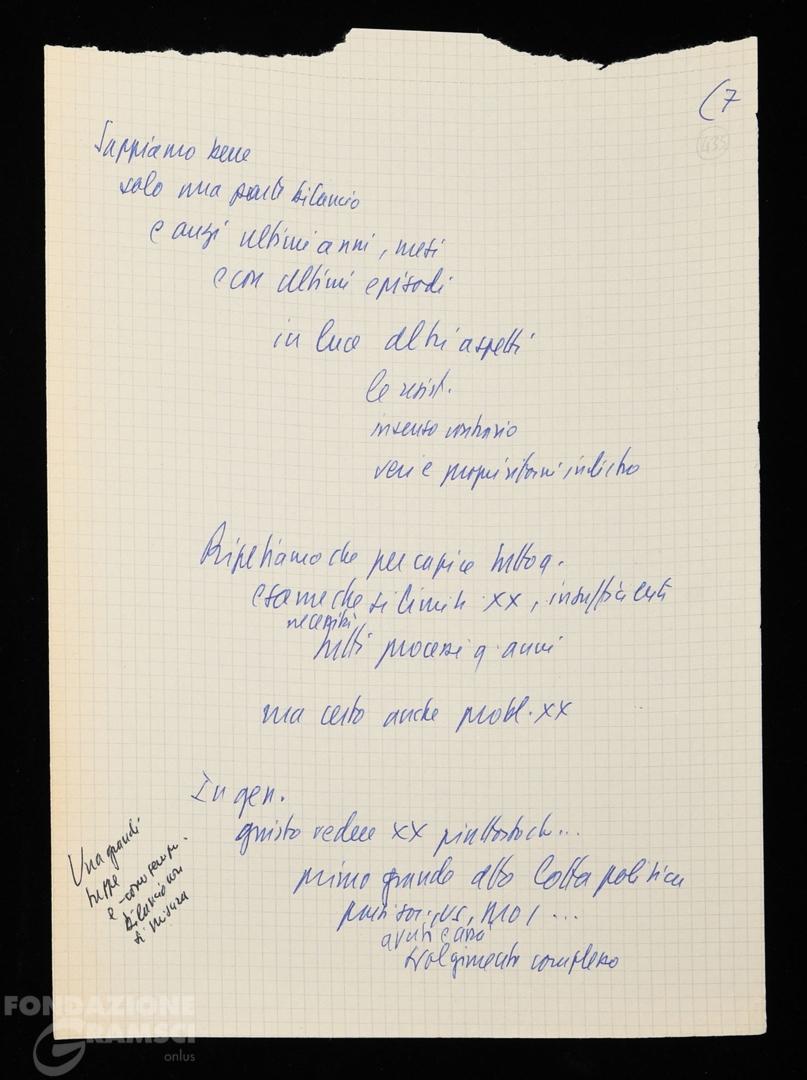 (7
435
Sappiamo bene
solo una parte bilancio
e anzi ultimi anni, mesi
e con ultimi episodi
in luce altri aspetti
le resist.
in senso contrario
veri e propri ritorni indietro
Ripetiamo che per capire tutto q.
esame che si limiti XX, insufficiente
necessari
tutti processi q. anni
ma certo anche probl. XX
In gen.
giusto vedere XX piuttosto ch...
primo grande atto lotta politica
avanti e
svolgimento complesso
Una grandi
tappe
e come sempre
bilancio non
si misura
FONDAZIONE
GRAMSCI
onlus